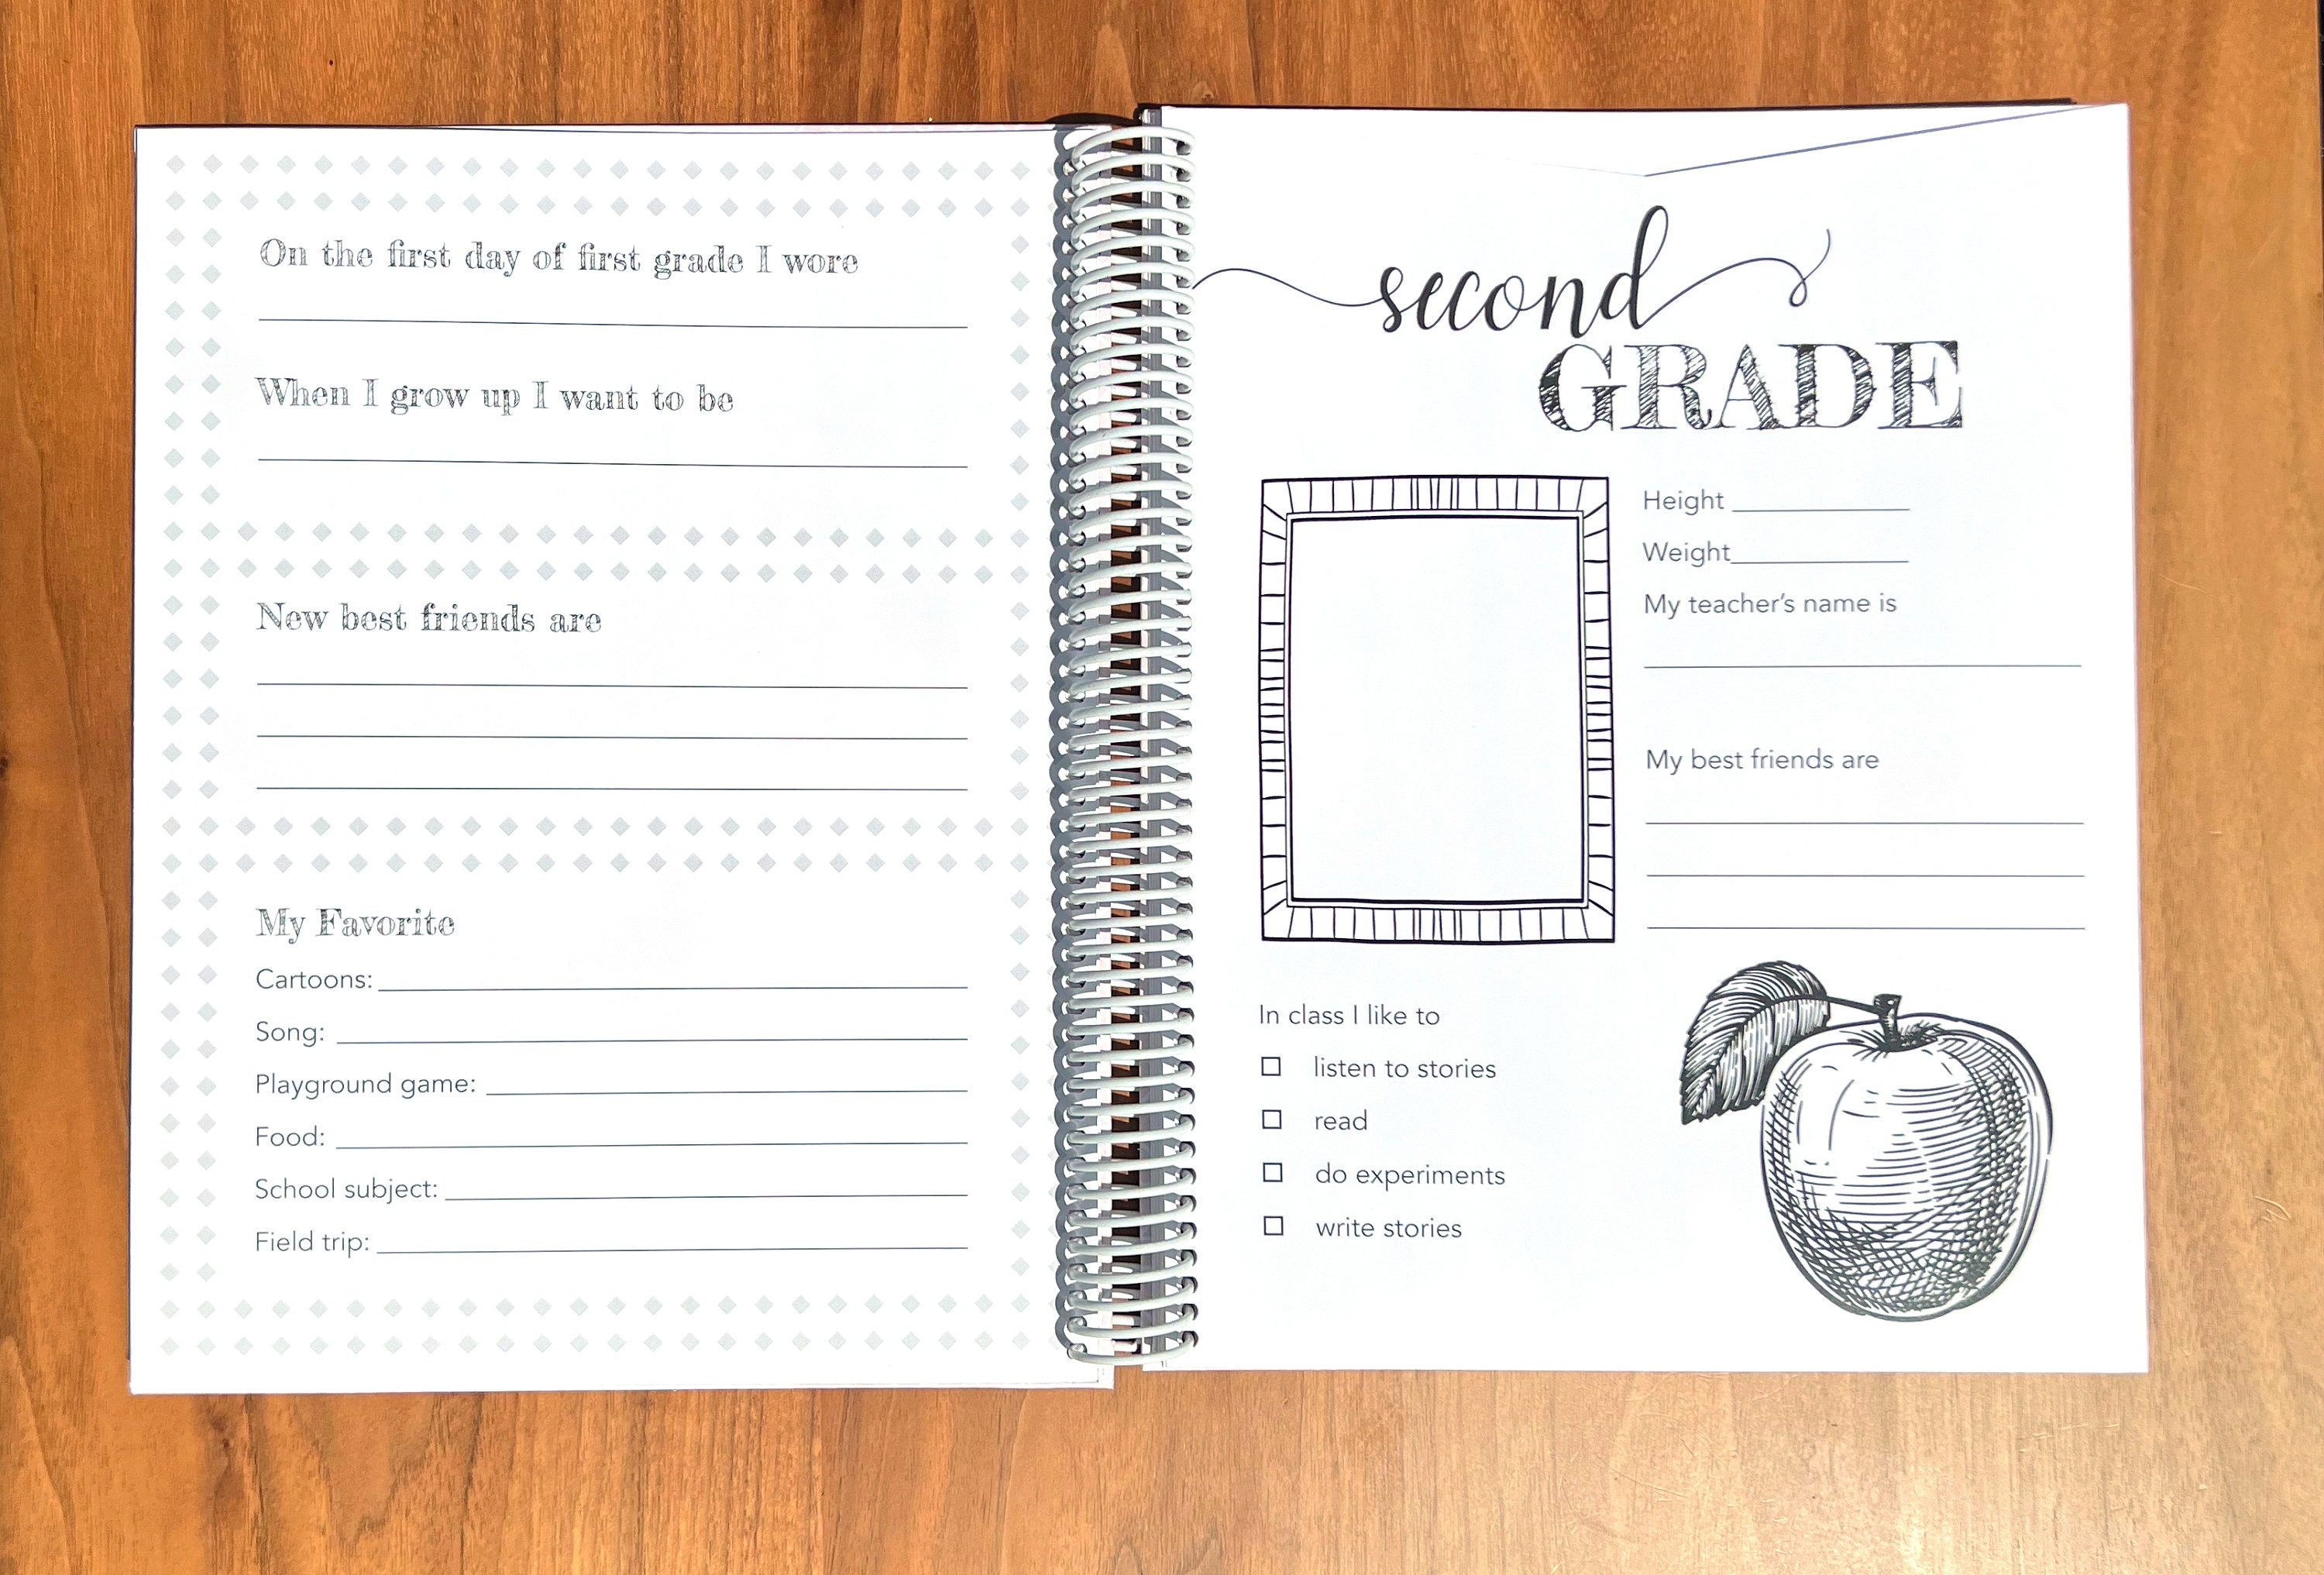 On the first day of first grade I wore
When I grow up I want to be
New best friends are
My Favorite
Cartoons:
Song:
Playground game:
Food:
School subject:
Field trip:
second
GRADE
Height
Weight
My teacher's name is
My best friends are
In class I like to
listen to stories
read
do experiments
write stories